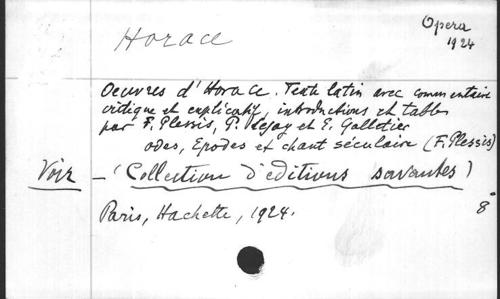 Opera
1924
Horace
Oeuvres d'Horace. Texte latin avec commentaire
critique et explicatif, introductions et tables
par F. Plessis, P. Lejay et E. Galletier
Odes, Epodes et chant séculaire (F. Plessis)
Voir - (Collection d'editions savantes)
Paris, Hachette, 1924. 8°